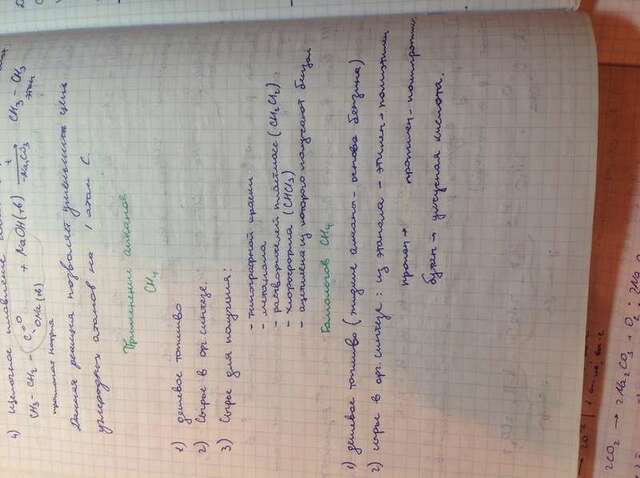 4) щелочное плавление
CH3 - CH2 - C =O ONa (т) + NaOH (т) t → Na2CO3 CH3 - CH3
этан
пропионат натрия
Данная реакция позволяет уменьшить цепь
углеродных атомов на 1 атом C.
Применение алканов
CH4
1) дешевое топливо
2) Сырье в орг. синтезе
3) Сырье для получения:
- типографской краски
- метанола
- растворителей пластмасс (CH2Cl2)
- хлороформа (CHCl3)
- ацетилена из которого получают бензол
Гомологов CH4
1) дешевое топливо (жидкие алканы - основа бензина)
2) сырье в орг. синтезе: из этана → этилен → полиэтилен
пропан → пропилен → полипропилен
бутан → уксусная кислота.
2CO2 → 2Na2CO3 + O2